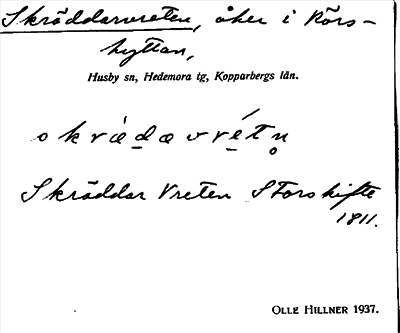 Skräddarvreten, åker i Rörs-
hyttan,
Husby sn, Hedemora tg, Kopparbergs län.
Skräddar Vreten Storskifte
1811.
OLLE HILLNER 1937.